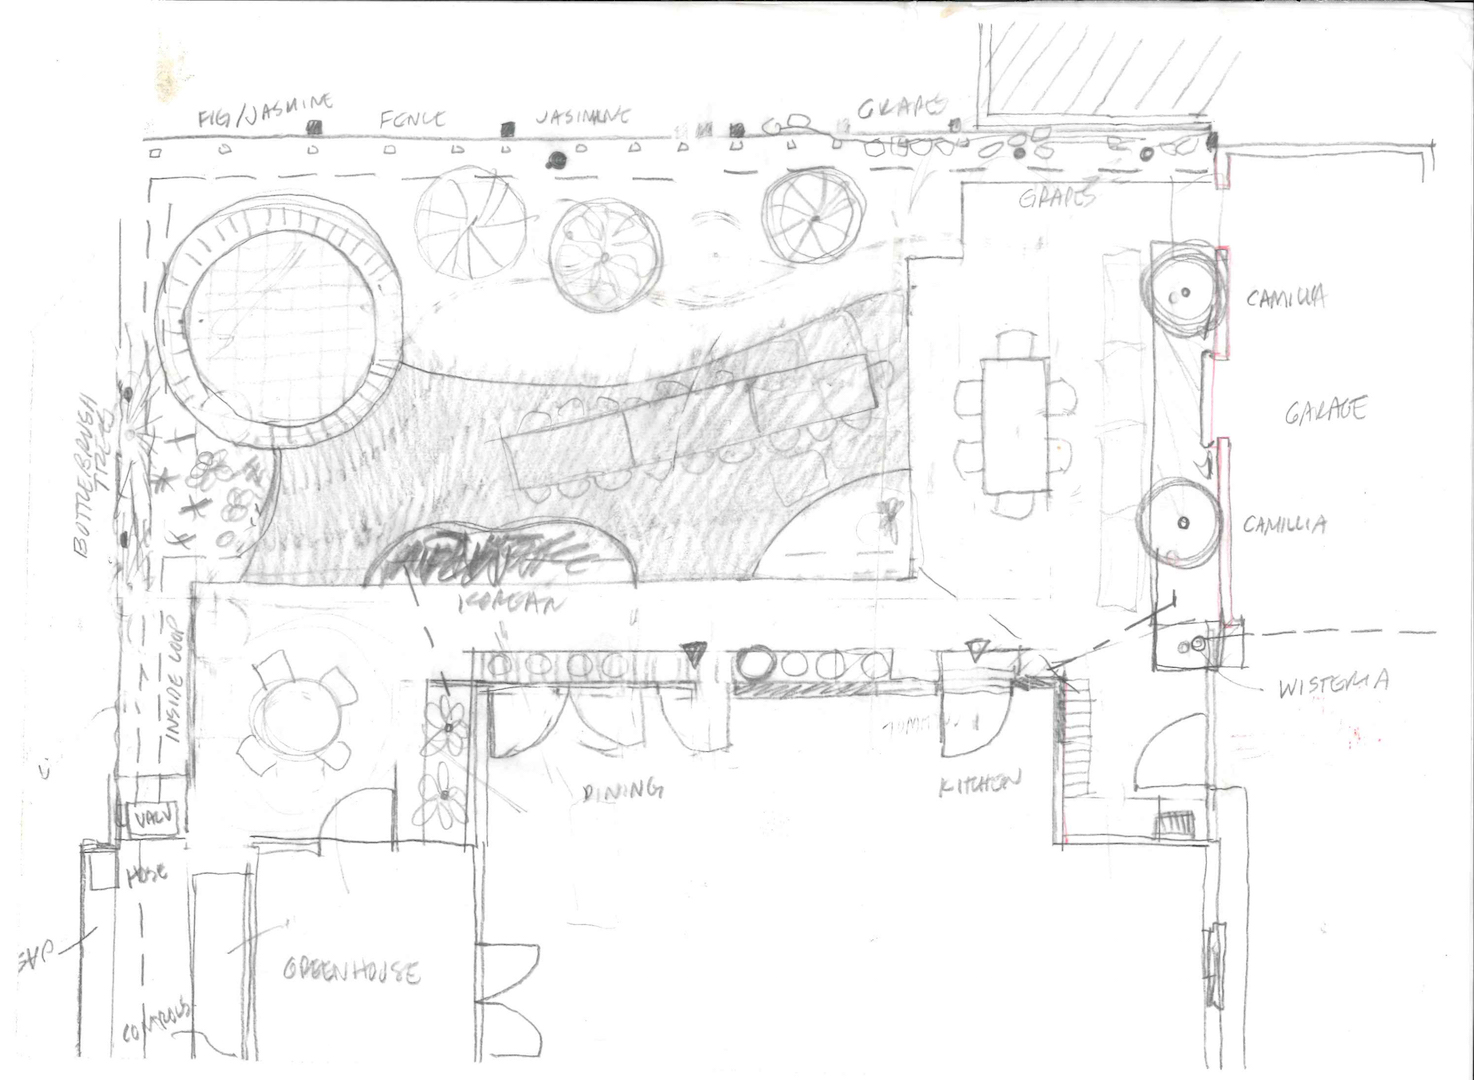 FIG/JASMINE
FENCE
JASIMINE
GRAPES
GRAPES
CAMILIA
GARAGE
CAMILLIA
BOTTLEBRUSH
TREES
KOREAN
INSIDE LOOP
WISTERIA
DINING
KITCHEN
VALV
HOSE
GREENHOUSE
CONTROLS